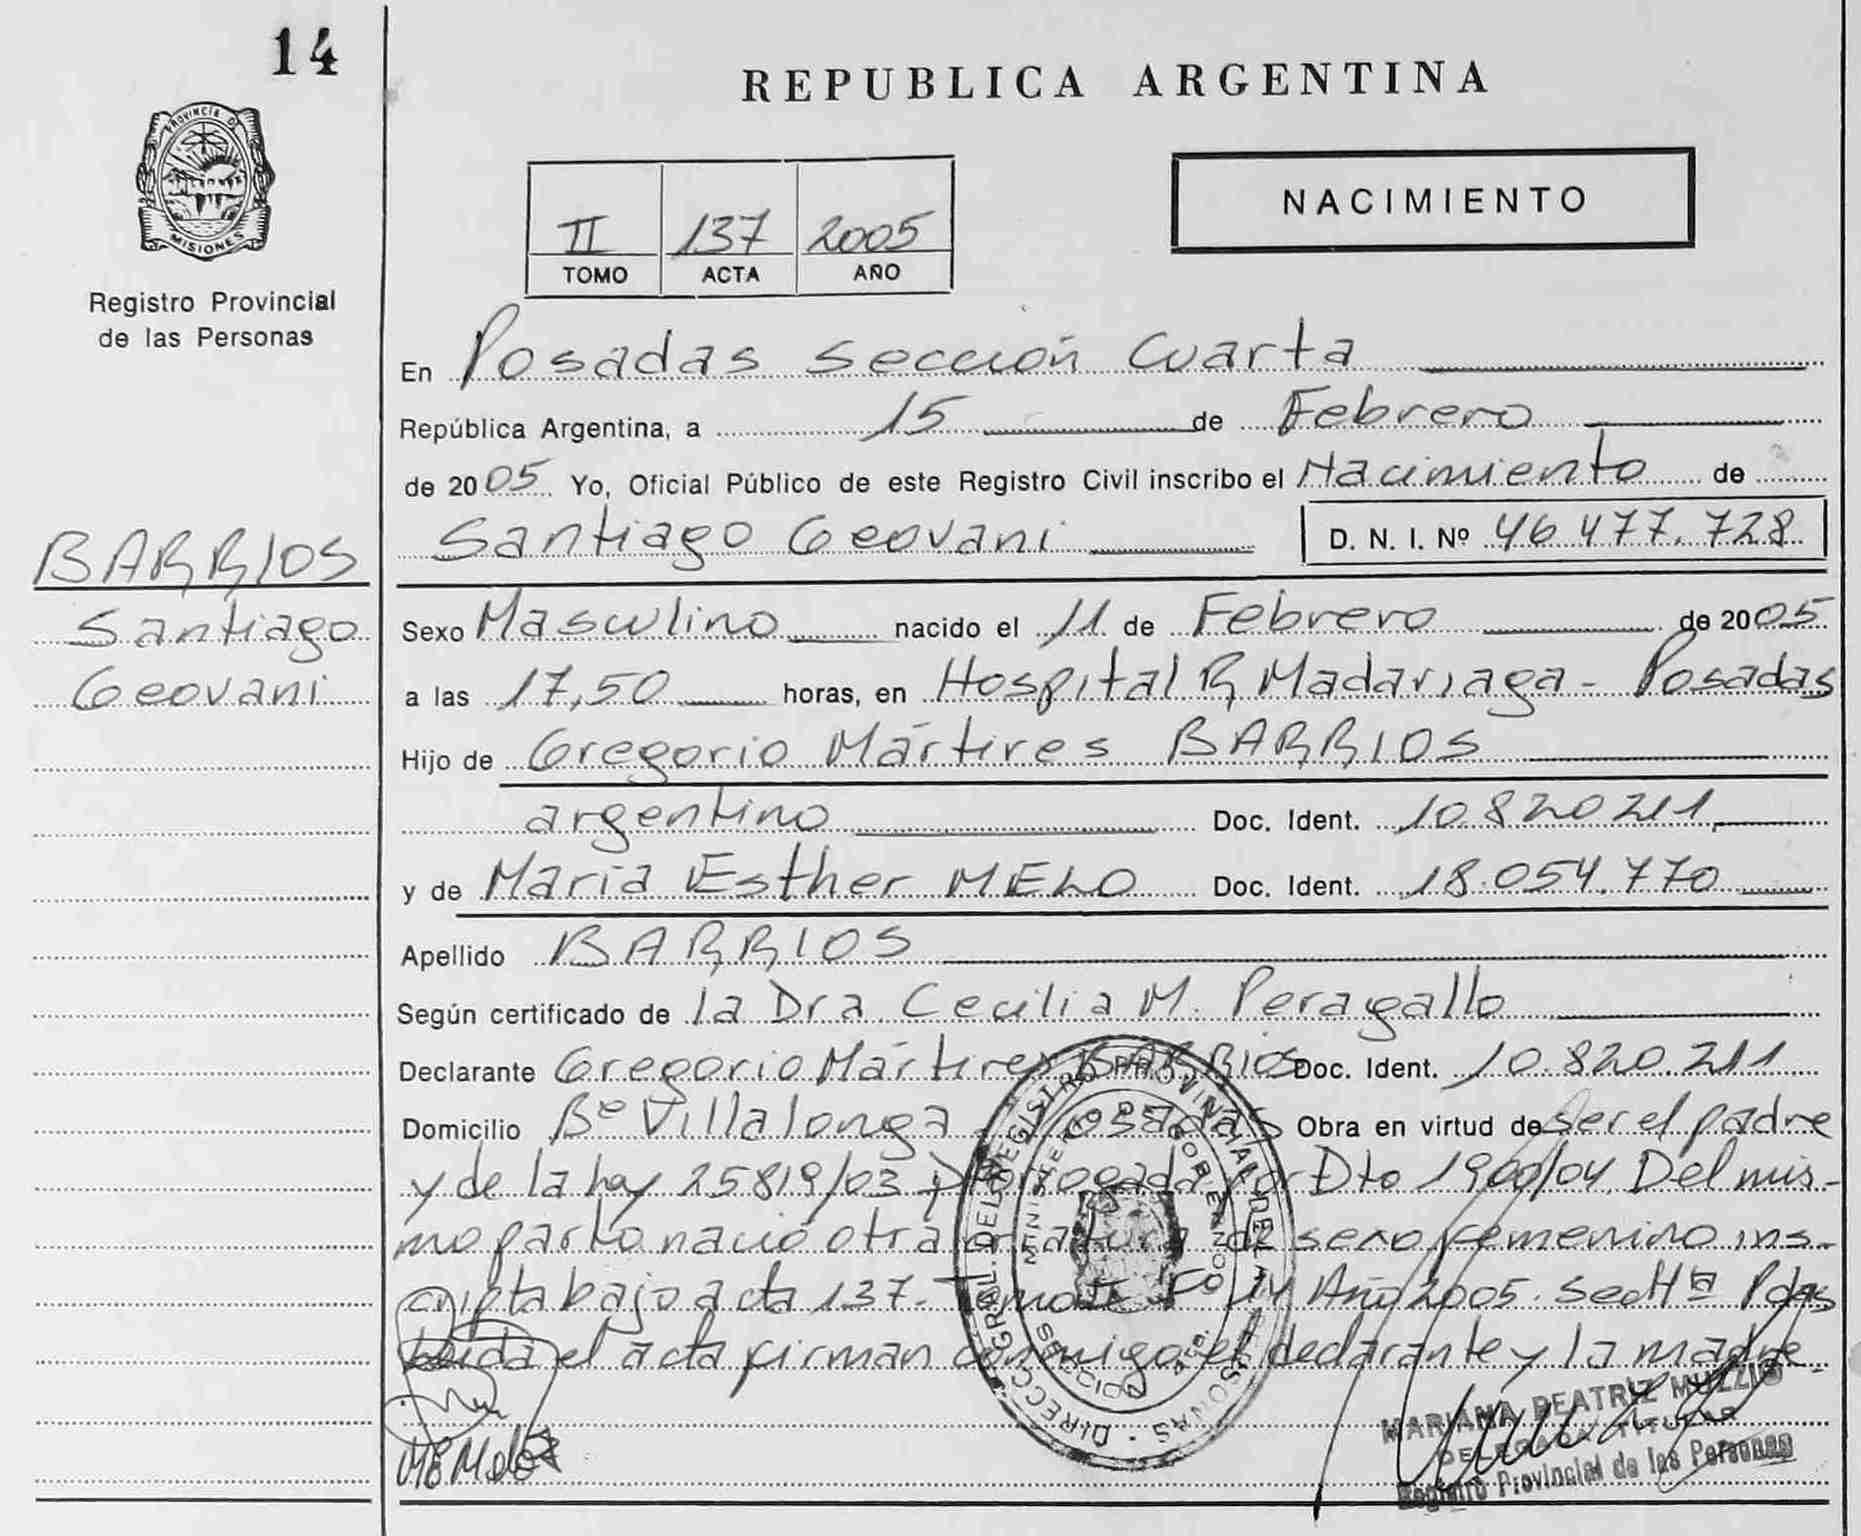 14
REPUBLICA ARGENTINA
PROVINCIA DE
MISIONES
Registro Provincial
de las Personas
II 137 2005
TOMO ACTA AÑO
NACIMIENTO
En Posadas Sección Cuarta
República Argentina, a 15 de Febrero
de 2005 Yo, Oficial Público de este Registro Civil inscribo el Nacimiento de
Santiago Geovani D. N. I. Nº 46 477.728
BARRIOS
Santiago
Geovani
Sexo Masculino nacido el 11 de Febrero de 2005
a las 17,50 horas, en Hospital R Madariaga - Posadas
Hijo de Gregorio Mártires BARRIOS
argentino Doc. Ident. 10.820 211
y de María Esther MELO Doc. Ident. 18.054.770
Apellido BARRIOS
Según certificado de la Dra Cecilia M. Peragallo
Declarante Gregorio Mártires BARRIOS Doc. Ident. 10.820.211
Domicilio Bº Villalonga Posadas Obra en virtud de ser el padre
y de la ley 25819/03 Prorrogada por Dto 1900/04. Del mis-
mo parto nació otra criatura de sexo femenino ins-
cripta bajo acta 137- Tomo Fº Año 2005. Secc 4ª Pdas
Leida el acta firman conmigo el declarante y la madre.
DIRECC. GRAL. DEL REGISTRO PROVINCIAL DE LAS PERSONAS
MINISTERIO DE GOBIERNO
MISIONES
ME Melo
MARIANA BEATRIZ MUZZIO
DELEGADA TITULAR
Registro Provincial de las Personas